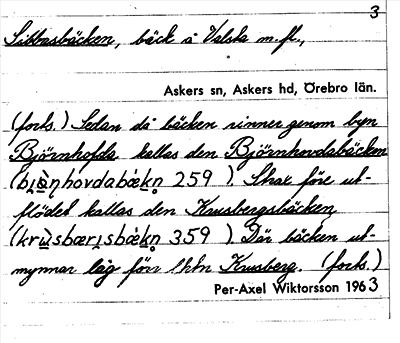 3
Sibbasbäcken, bäck å Valsta m.fl.,
Askers sn, Askers hd, Örebro län.
(forts.) Sedan då bäcken rinner genom byn
Björnhofda kallas den Björnhovdabäcken
(bi̯ὰn̥hovdabækn̥ 259 ). Strax före ut-
flödet kallas den Krusbergsbäcken
(krùsbærısbækn̥ 359 ). Där bäcken ut-
mynnar låg förr lht Krusberg. (forts.)
Per-Axel Wiktorsson 1963